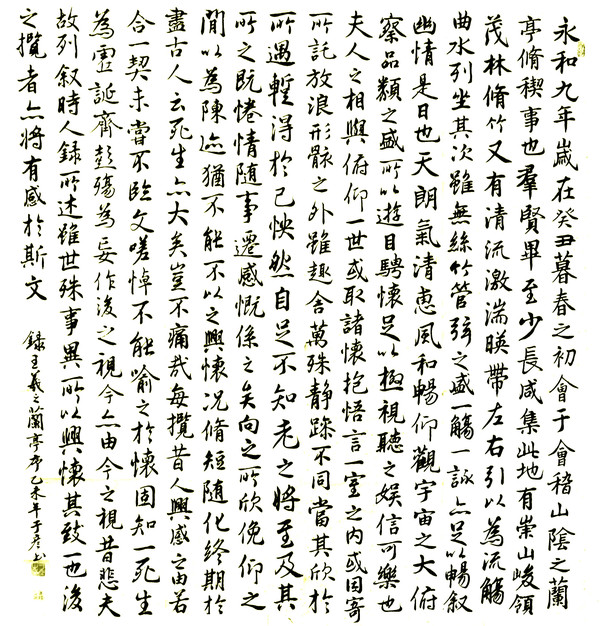 永和九年歲在癸丑暮春之初會于會稽山陰之蘭
亭脩稧事也羣賢畢至少長咸集此地有崇山峻領
茂林脩竹又有清流激湍暎帶左右引以為流觴
曲水列坐其次雖無絲竹管弦之盛一觴一詠亦足以暢叙
幽情是日也天朗氣清惠風和暢仰觀宇宙之大俯
察品類之盛所以遊目騁懷足以極視聽之娛信可樂也
夫人之相與俯仰一世或取諸懷抱悟言一室之內或因寄
所託放浪形骸之外雖趣舍萬殊静躁不同當其欣於
所遇暫得於己怏然自足不知老之將至及其
所之既惓情隨事遷感慨係之矣向之所欣俛仰之
間以為陳迹猶不能不以之興懷况脩短隨化終期於
盡古人云死生亦大矣豈不痛哉每攬昔人興感之由若
合一契未嘗不臨文嗟悼不能喻之於懷固知一死生
為虛誕齊彭殤為妄作後之視今亦由今之視昔悲夫
故列叙時人錄所述雖世殊事異所以興懷其致一也後
之攬者亦將有感於斯文
錄王羲之蘭亭序乙未年于彦書